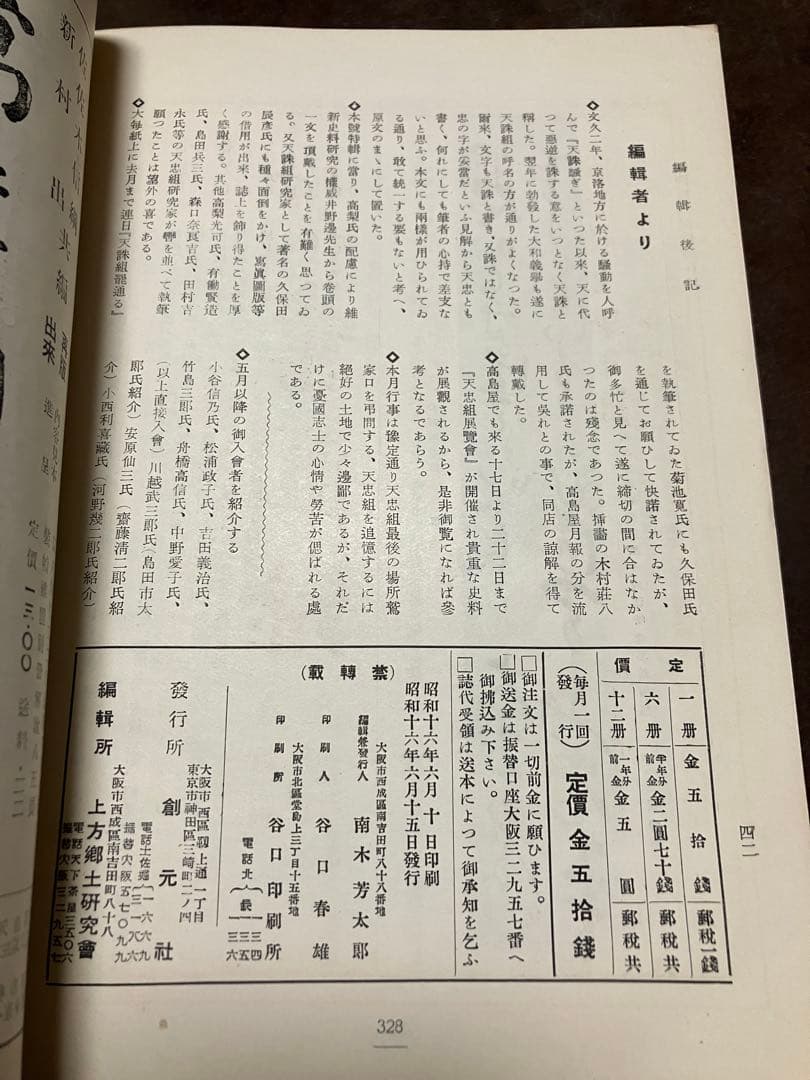 編輯後記
編輯者より
◇文久二年、京洛地方に於ける騷動を人呼
んで『天誅騷ぎ』といつた以來、天に代
つて惡逆を誅する意をいつとなく天誅と
稱した。翌年に勃發した大和義擧も遂に
天誅組の呼名の方が通りがよくなつた。
爾來、文字も天誅と書き、又誅ではなく、
忠の字が妥當だといふ見解から天忠とも
書く、何れにしても筆者の心持で差支な
いと思ふ。本文にも兩樣が用ひられてゐ
る通り、敢て統一する要もないと考へ、
原文のまゝにして置いた。
◇本號特輯に當り、高梨氏の配慮により維
新史料研究の權威井野邊先生から卷頭の
一文を頂戴したことを有難く思つてゐ
る。又天誅組研究家として著名の久保田
辰彥氏にも種々面倒をかけ、寫眞圖版等
の借用が出來、誌上を飾り得たことを厚
く感謝する。其他高梨光司氏、有働賢造
氏、島田兵三氏、森口奈良吉氏、田村吉
永氏等の天忠組研究家が轡を並べて執筆
願つたことは望外の喜である。
◇大每紙上に去月まで連日『天誅組罷通る』
を執筆されてゐた菊池寬氏にも久保田氏
を通じてお願ひして快諾されてゐたが、
御多忙と見へて遂に締切の間に合はなか
つたのは殘念であつた。揷畵の木村莊八
氏も承諾されたが、高島屋月報の分を流
用して吳れとの事で、同店の諒解を得て
轉載した。
◇高島屋でも來る十七日より二十二日まで
『天忠組展覽會』が開催され貴重な史料
が展觀されるから、是非御覽になれば參
考となるであらう。
◇本月行事は豫定通り天忠組最後の場所鷲
家口を弔問する、天忠組を追憶するには
絕好の土地で少々邊鄙であるが、それだ
けに憂國志士の心情や勞苦が偲ばれる處
である。
◇五月以降の御入會者を紹介する
小谷信乃氏、松浦政子氏、吉田義治氏、
竹島三郞氏、舟橋高信氏、中野愛子氏、
(以上直接入會)川越武三郞氏(島田市太
郞氏紹介)安原仙三氏(齋藤淸二郞氏紹
介)小西利喜藏氏(河野幾二郞氏紹介)
四二
定價
一册 金五拾錢 郵稅一錢
六册 半年分前金 金二圓七十錢 郵稅共
十二册 一年分前金 金五圓 郵稅共
(每月一回發行) 定價金五拾錢
□御注文は一切前金に願ひます。
□御送金は振替口座大阪三二九五七番へ
御拂込み下さい。
□誌代受領は送本によつて御承知を乞ふ
(禁轉載)
昭和十六年六月十日印刷
昭和十六年六月十五日發行
大阪市西成區南吉田町八十八番地
編輯兼發行人 南木芳太郞
印刷人 谷口春雄
大阪市北區堂島上三丁目十五番地
印刷所 谷口印刷所
電話北
發行所 創元社
大阪市西區靱上通一丁目
東京市神田區三崎町二ノ四
電話土佐堀
振替大阪五七〇九九
編輯所 上方鄕土硏究會
大阪市西成區南吉田町八十八
電話天下茶屋三五〇六
振替大阪三二九五七
328
定價一三・〇〇